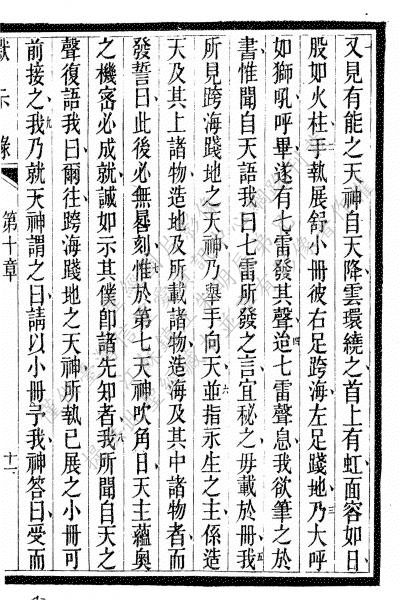 又見有能之天神自天降雲環繞之首上有虹面容如日
股如火柱手執展舒小冊彼右足跨海左足踐地乃大呼
如獅吼呼畢遂有七雷發其聲迨七雷聲息我欲筆之於
書惟聞自天語我曰七雷所發之言宜秘之毋載於冊我
所見跨海踐地之天神乃舉手向天並指永生之主係造
天及其上諸物造地及所載諸物造海及其中諸物者而
發誓曰此後必無晷刻惟於第七天神吹角日天主蘊奧
之機密必成就誠如示其僕卽諸先知者我所聞自天之
聲復語我曰爾往跨海踐地之天神所執已展之小冊可
前接之我乃就天神謂之曰請以小冊予我神答曰受而
默示錄
第十章
十一